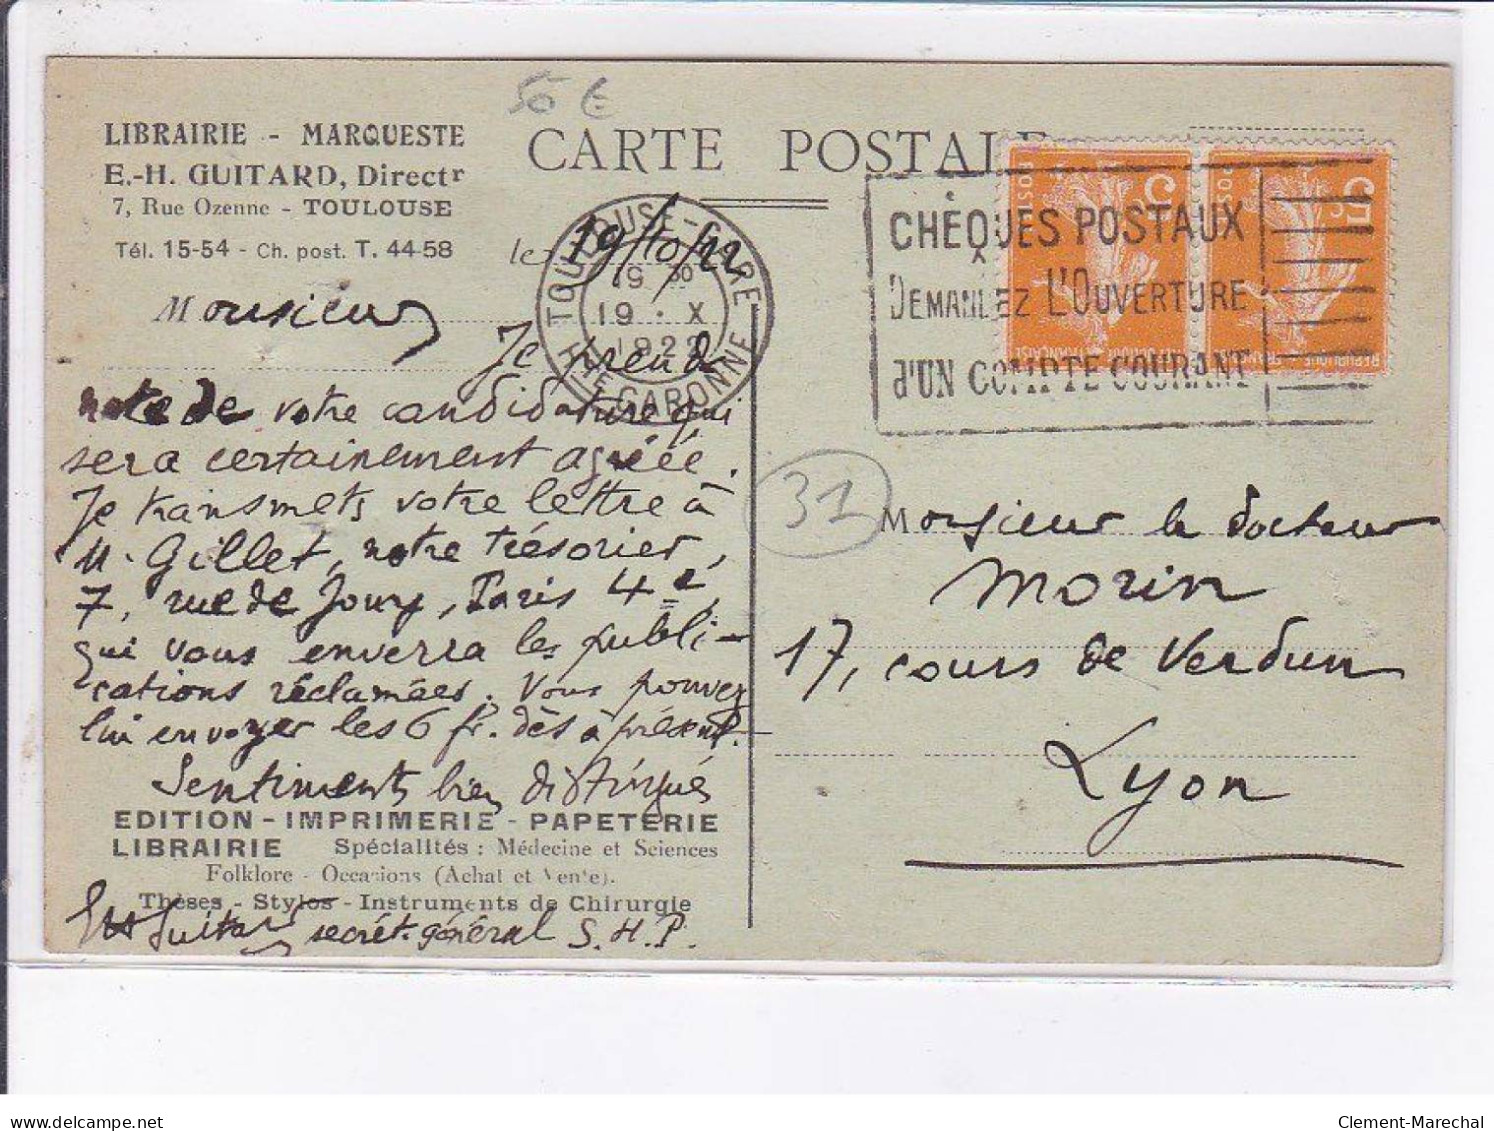 50 €
LIBRAIRIE - MARQUESTE
E.-H. GUITARD, Directr
7, Rue Ozenne - TOULOUSE
Tél. 15-54 - Ch. post. T. 44-58
CARTE POSTALE
le 19/10/22
TOULOUSE-GARE
19 30
19 · X
1922
HTE GARONNE
CHÈQUES POSTAUX
DEMANDEZ L'OUVERTURE
d'UN COMPTE COURANT
Monsieur
Je prends
note de votre candidature qui
sera certainement agréée.
Je transmets votre lettre à
M. Gillet, notre trésorier,
7, rue de Jouy, Paris 4e,
qui vous enverra les publi-
cations réclamées. Vous pouvez
lui envoyer les 6 fr. dès à présent.
Sentiments bien distingués
EDITION - IMPRIMERIE - PAPETERIE
LIBRAIRIE Spécialités : Médecine et Sciences
Folklore - Occasions (Achat et Vente).
Thèses - Stylos - Instruments de Chirurgie
EH Guitard secrét. général S.H.P.
31
Monsieur le docteur
Morin
17, cours de Verdun
Lyon
Clement-Marechal
www.delcampe.net